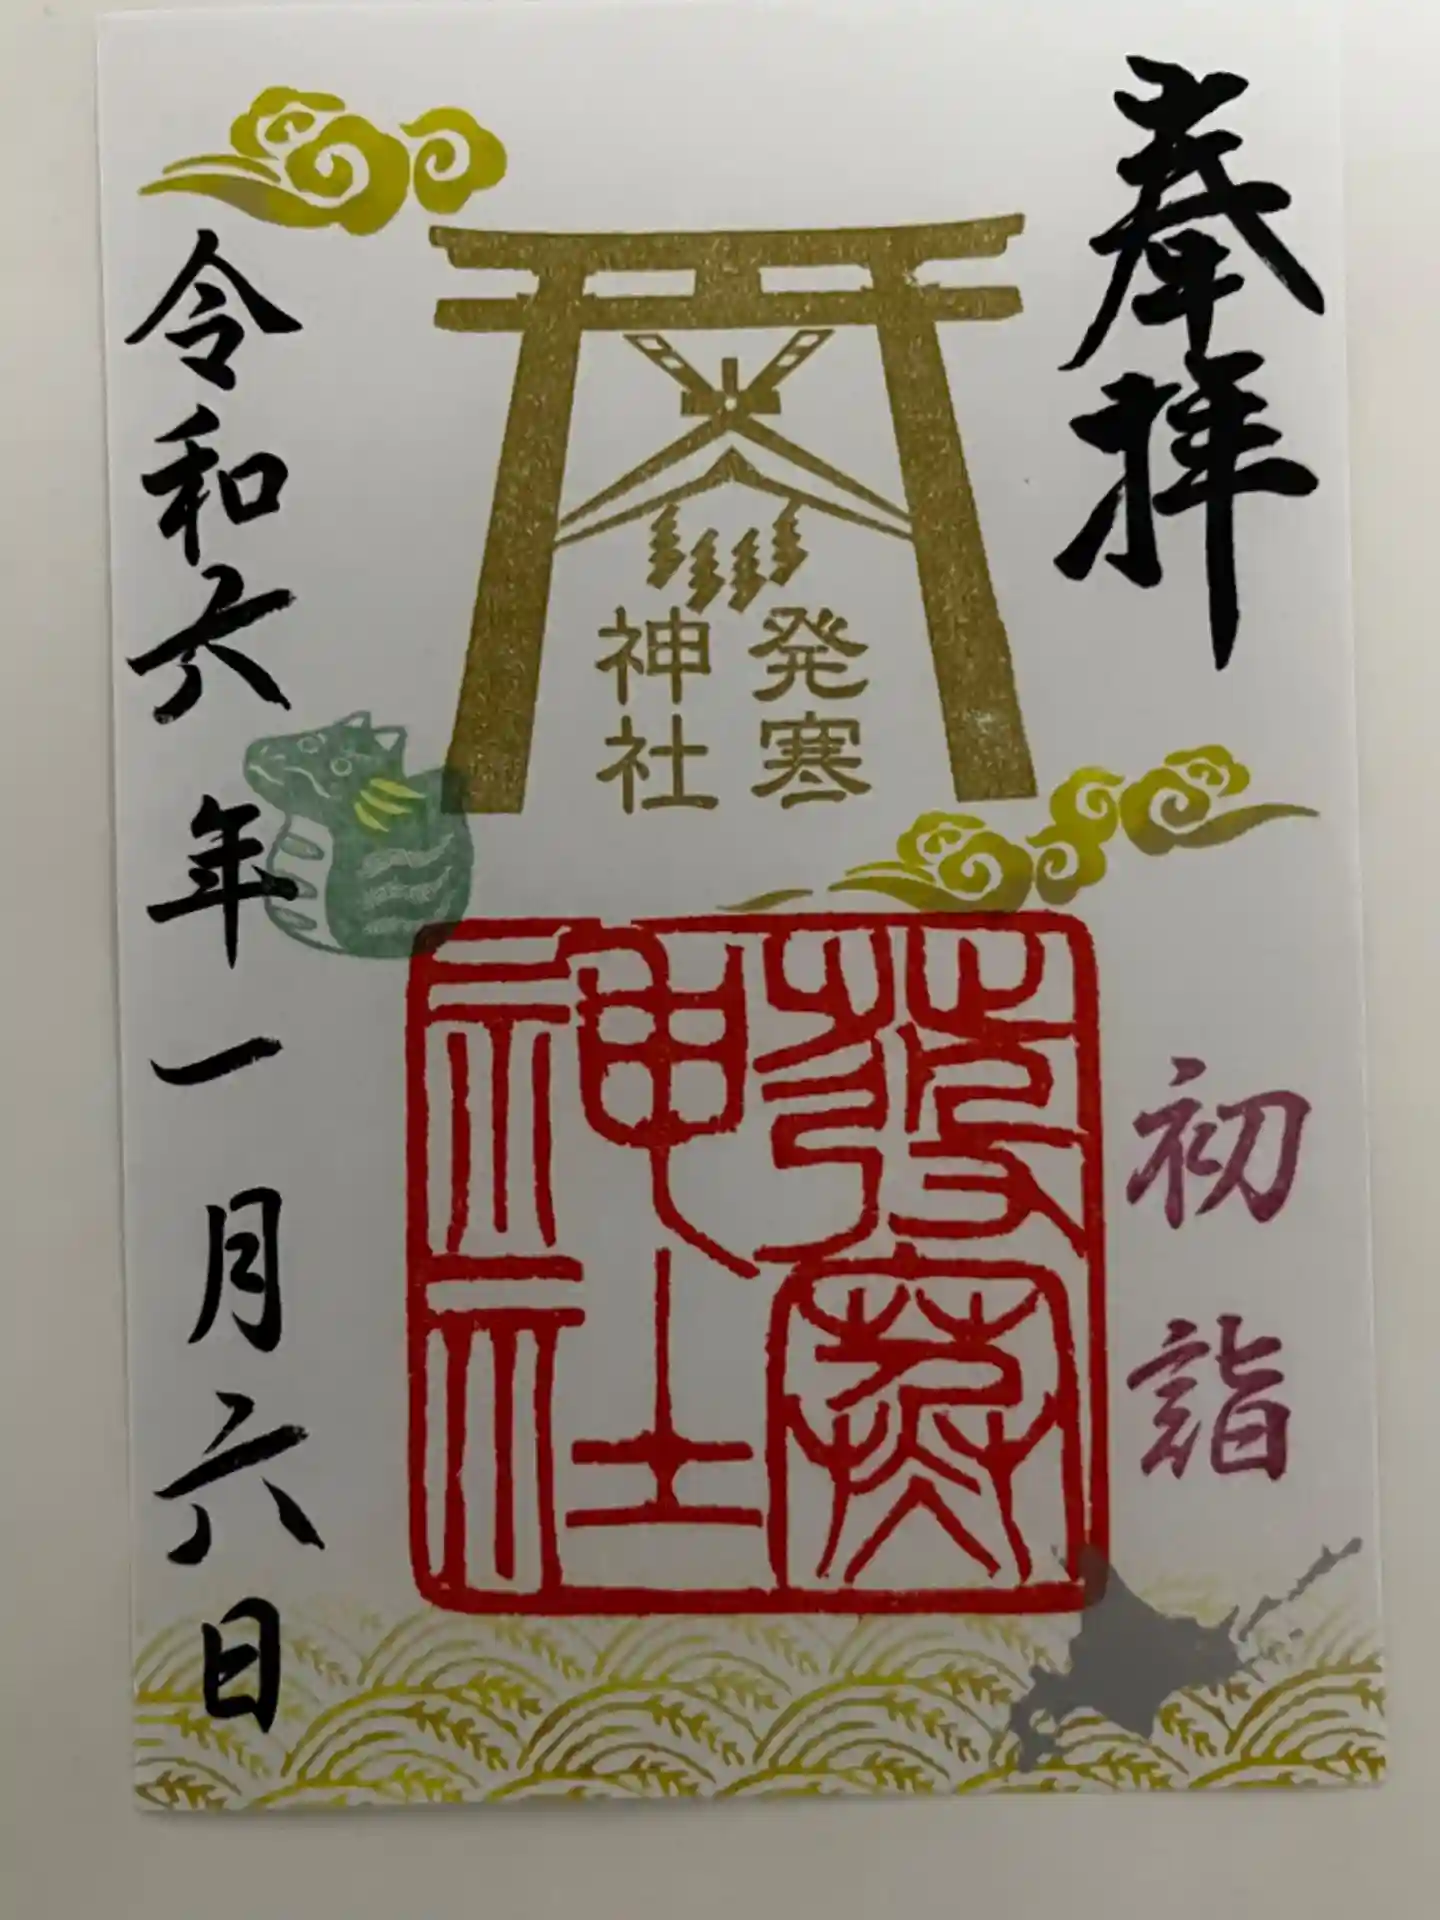 奉拝
初詣
発寒
神社
発寒
神社
令和六年一月六日